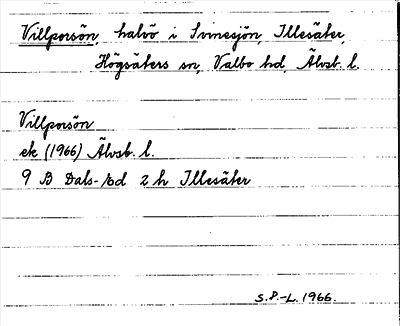 Villporsön, halvö i Svinesjön, Illesäter,
Högsäters sn, Valbo hd, Älvsb. l.
Villporsön
ek (1966) Älvsb. l.
9 B Dals-Ed 2 h Illesäter
S.P.-L. 1966.